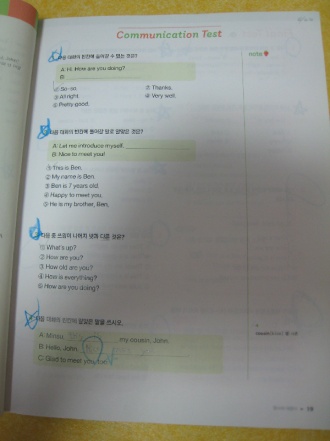 Communication Test
다음 대화의 빈칸에 들어갈 수 없는 것은?
note
A: Hi. How are you doing?
B:
① So-so.
② Thanks.
③ All right.
④ Very well.
⑤ Pretty good.
다음 대화의 빈칸에 들어갈 말로 알맞은 것은?
A: Let me introduce myself.
B: Nice to meet you!
① This is Ben.
② My name is Ben.
③ Ben is 7 years old.
④ Happy to meet you.
⑤ He is my brother, Ben.
다음 중 쓰임이 나머지 넷과 다른 것은?
① What's up?
② How are you?
③ How old are you?
④ How is everything?
⑤ How are you doing?
다음 대화의 빈칸에 알맞은 말을 쓰시오.
A: my cousin, John.
B: Hello, John.
C: Glad to meet you,